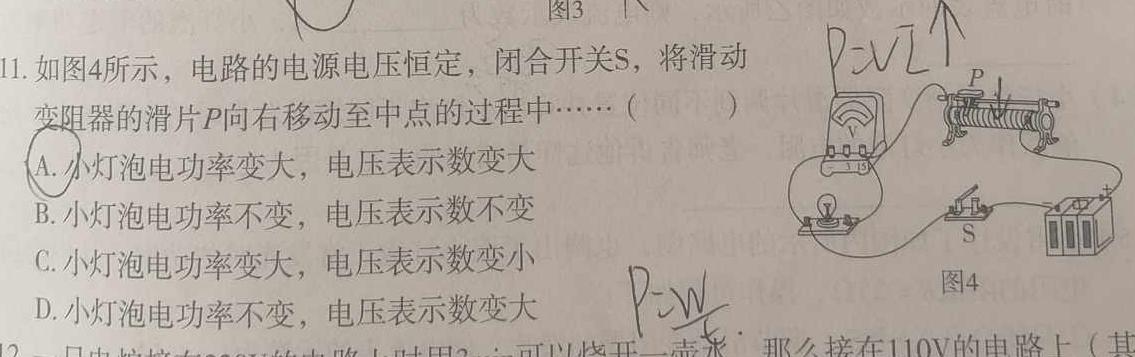 图3
11. 如图4所示，电路的电源电压恒定，闭合开关S，将滑动
变阻器的滑片P向右移动至中点的过程中……（ ）
A. 小灯泡电功率变大，电压表示数变大
B. 小灯泡电功率不变，电压表示数不变
C. 小灯泡电功率变大，电压表示数变小
D. 小灯泡电功率不变，电压表示数变大
P=UI↑
P
V
- 3 15
S
- +
图4
P=W/t
可以烧开一壶水，那么接在110V的电路上（其